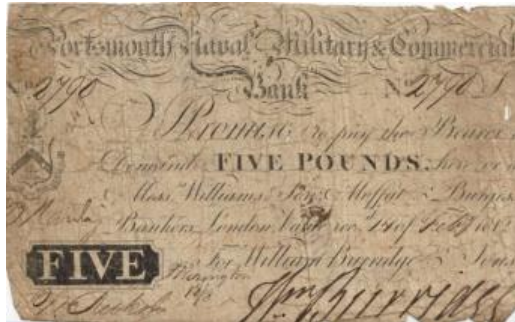 Portsmouth Naval Military & Commercial
Bank
No 2790 No 2790
I Promise to pay the Bearer
Demand FIVE POUNDS. here or
Mess. Williams Son & Moffat & Burges
Bankers London Value rec.d 14 of Feb.y
FIVE
For William Burridge Sons
Wm Burridge